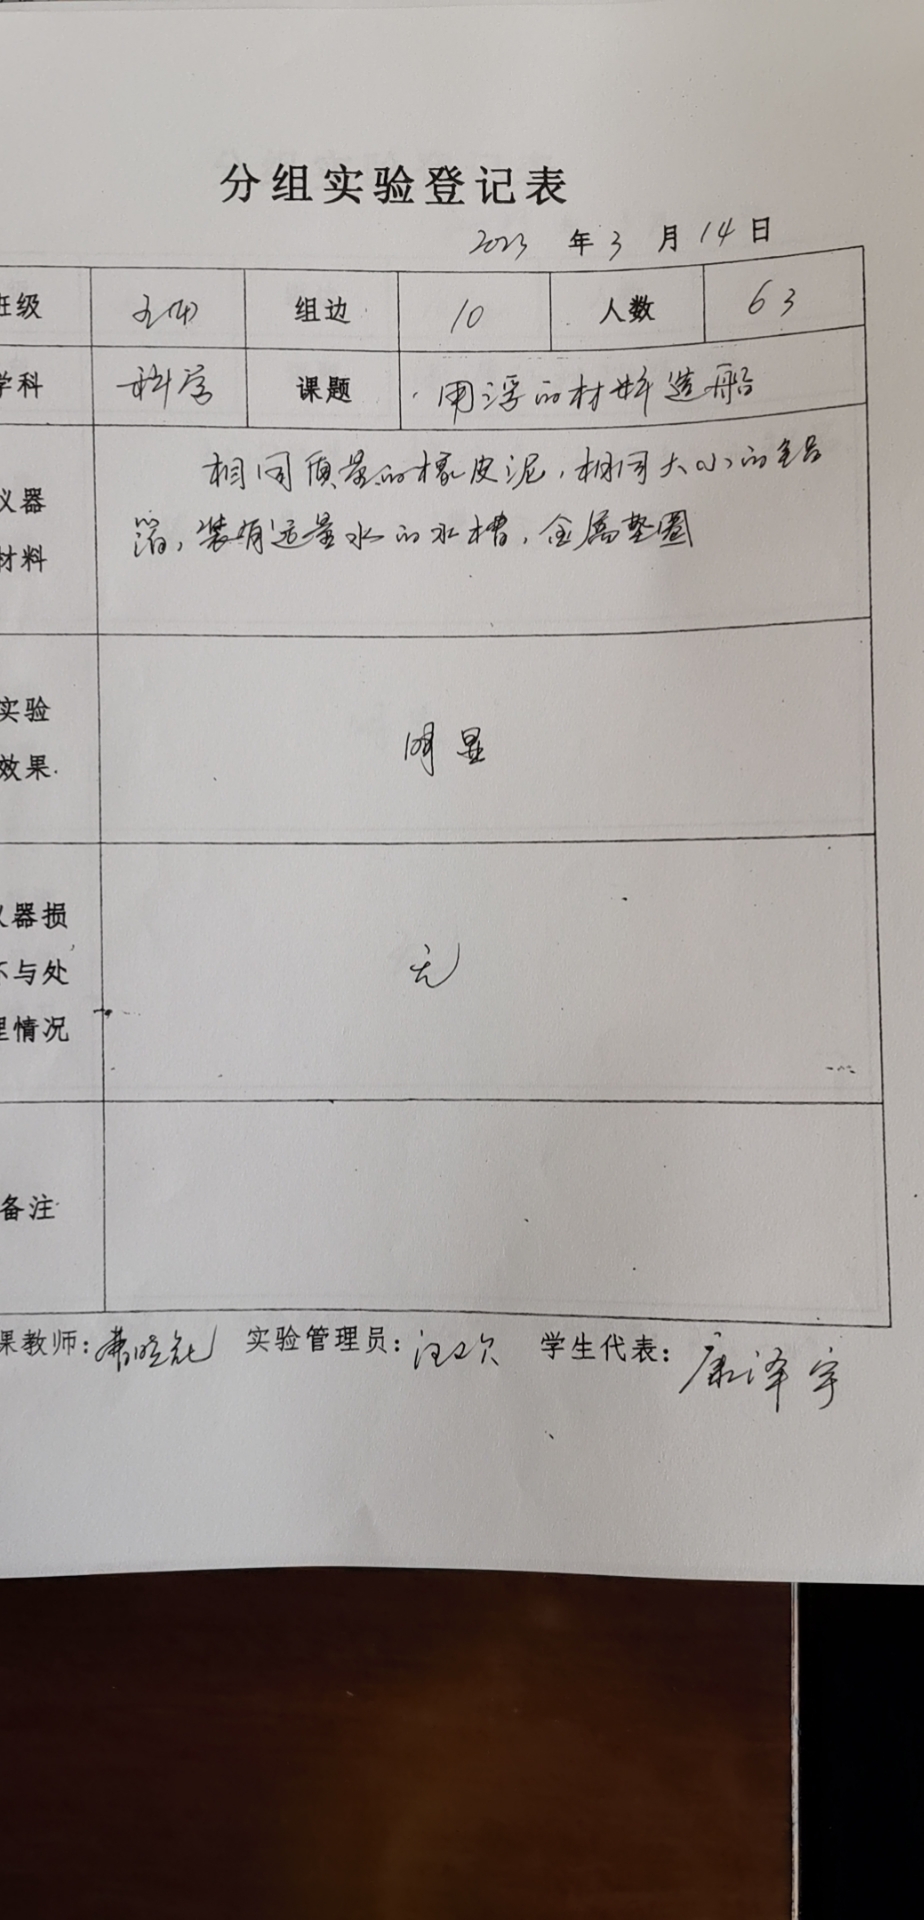 分组实验登记表
2023 年 3 月 14 日
班级 五(4) 组边 10 人数 63
学科 科学 课题 用浮的材料造船
仪器 相同质量的橡皮泥，相同大小的铝
材料 箔，装有适量水的水槽，金属垫圈
实验
效果 明显
仪器损
坏与处 无
理情况
备注
课教师: 实验管理员: 学生代表: 康泽宇